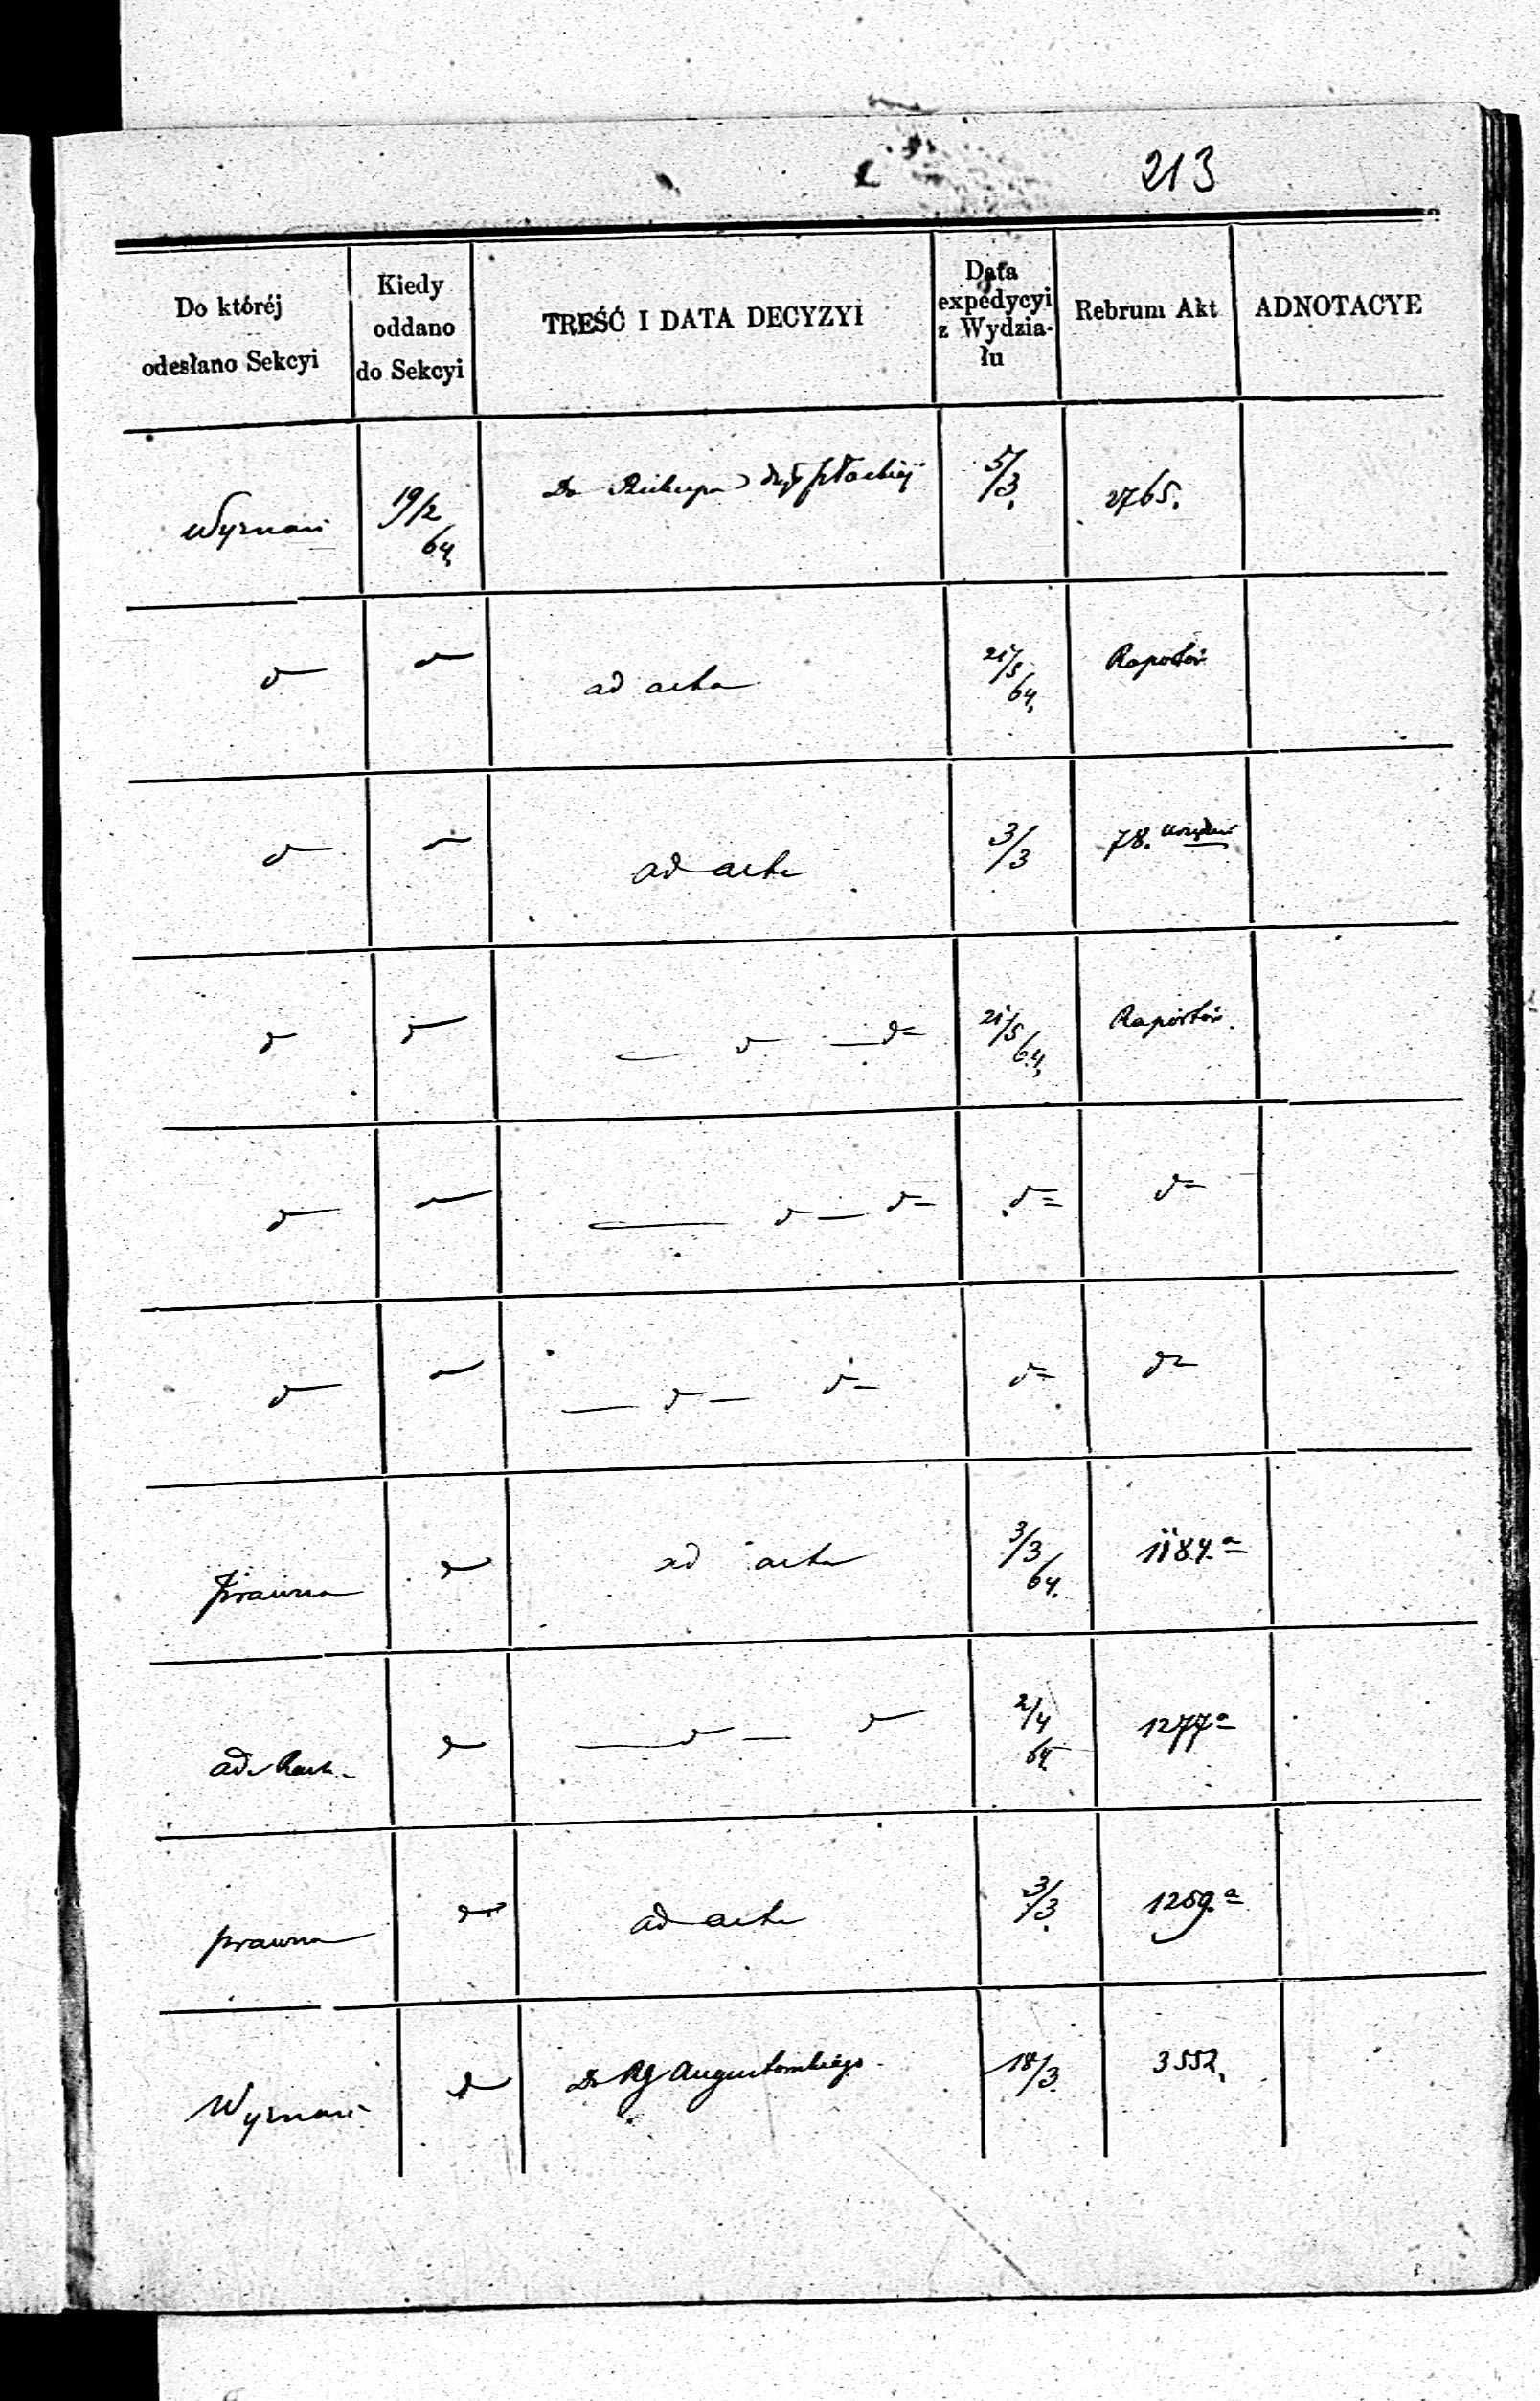 213
Do któréj
odesłano Sekcyi
Kiedy
oddano
do Sekcyi
TREŚĆ I DATA DECYZYI
Data
expedycyi
z Wydzia-
łu
Rebrum Akt
ADNOTACYE
Wyznań 19/2 64 Do Biskupa Dyec. płockiej 5/3 2765.
d° — ad acta 21/5 64. Raportów
d° — ad acta 3/3 78.
d° d° — d° — d° 21/5 64. Raportów.
d° — — d° — d° d° d°
d° — — d° — d° d° d°
Prawna d° ad acta 3/3 64. 1184.a
d° — d° — d° 2/4 64 1277a
prawna d° ad acta 3/3 1259.a
Wyznań d° Do RG Augustowskiego 18/3. 3552.